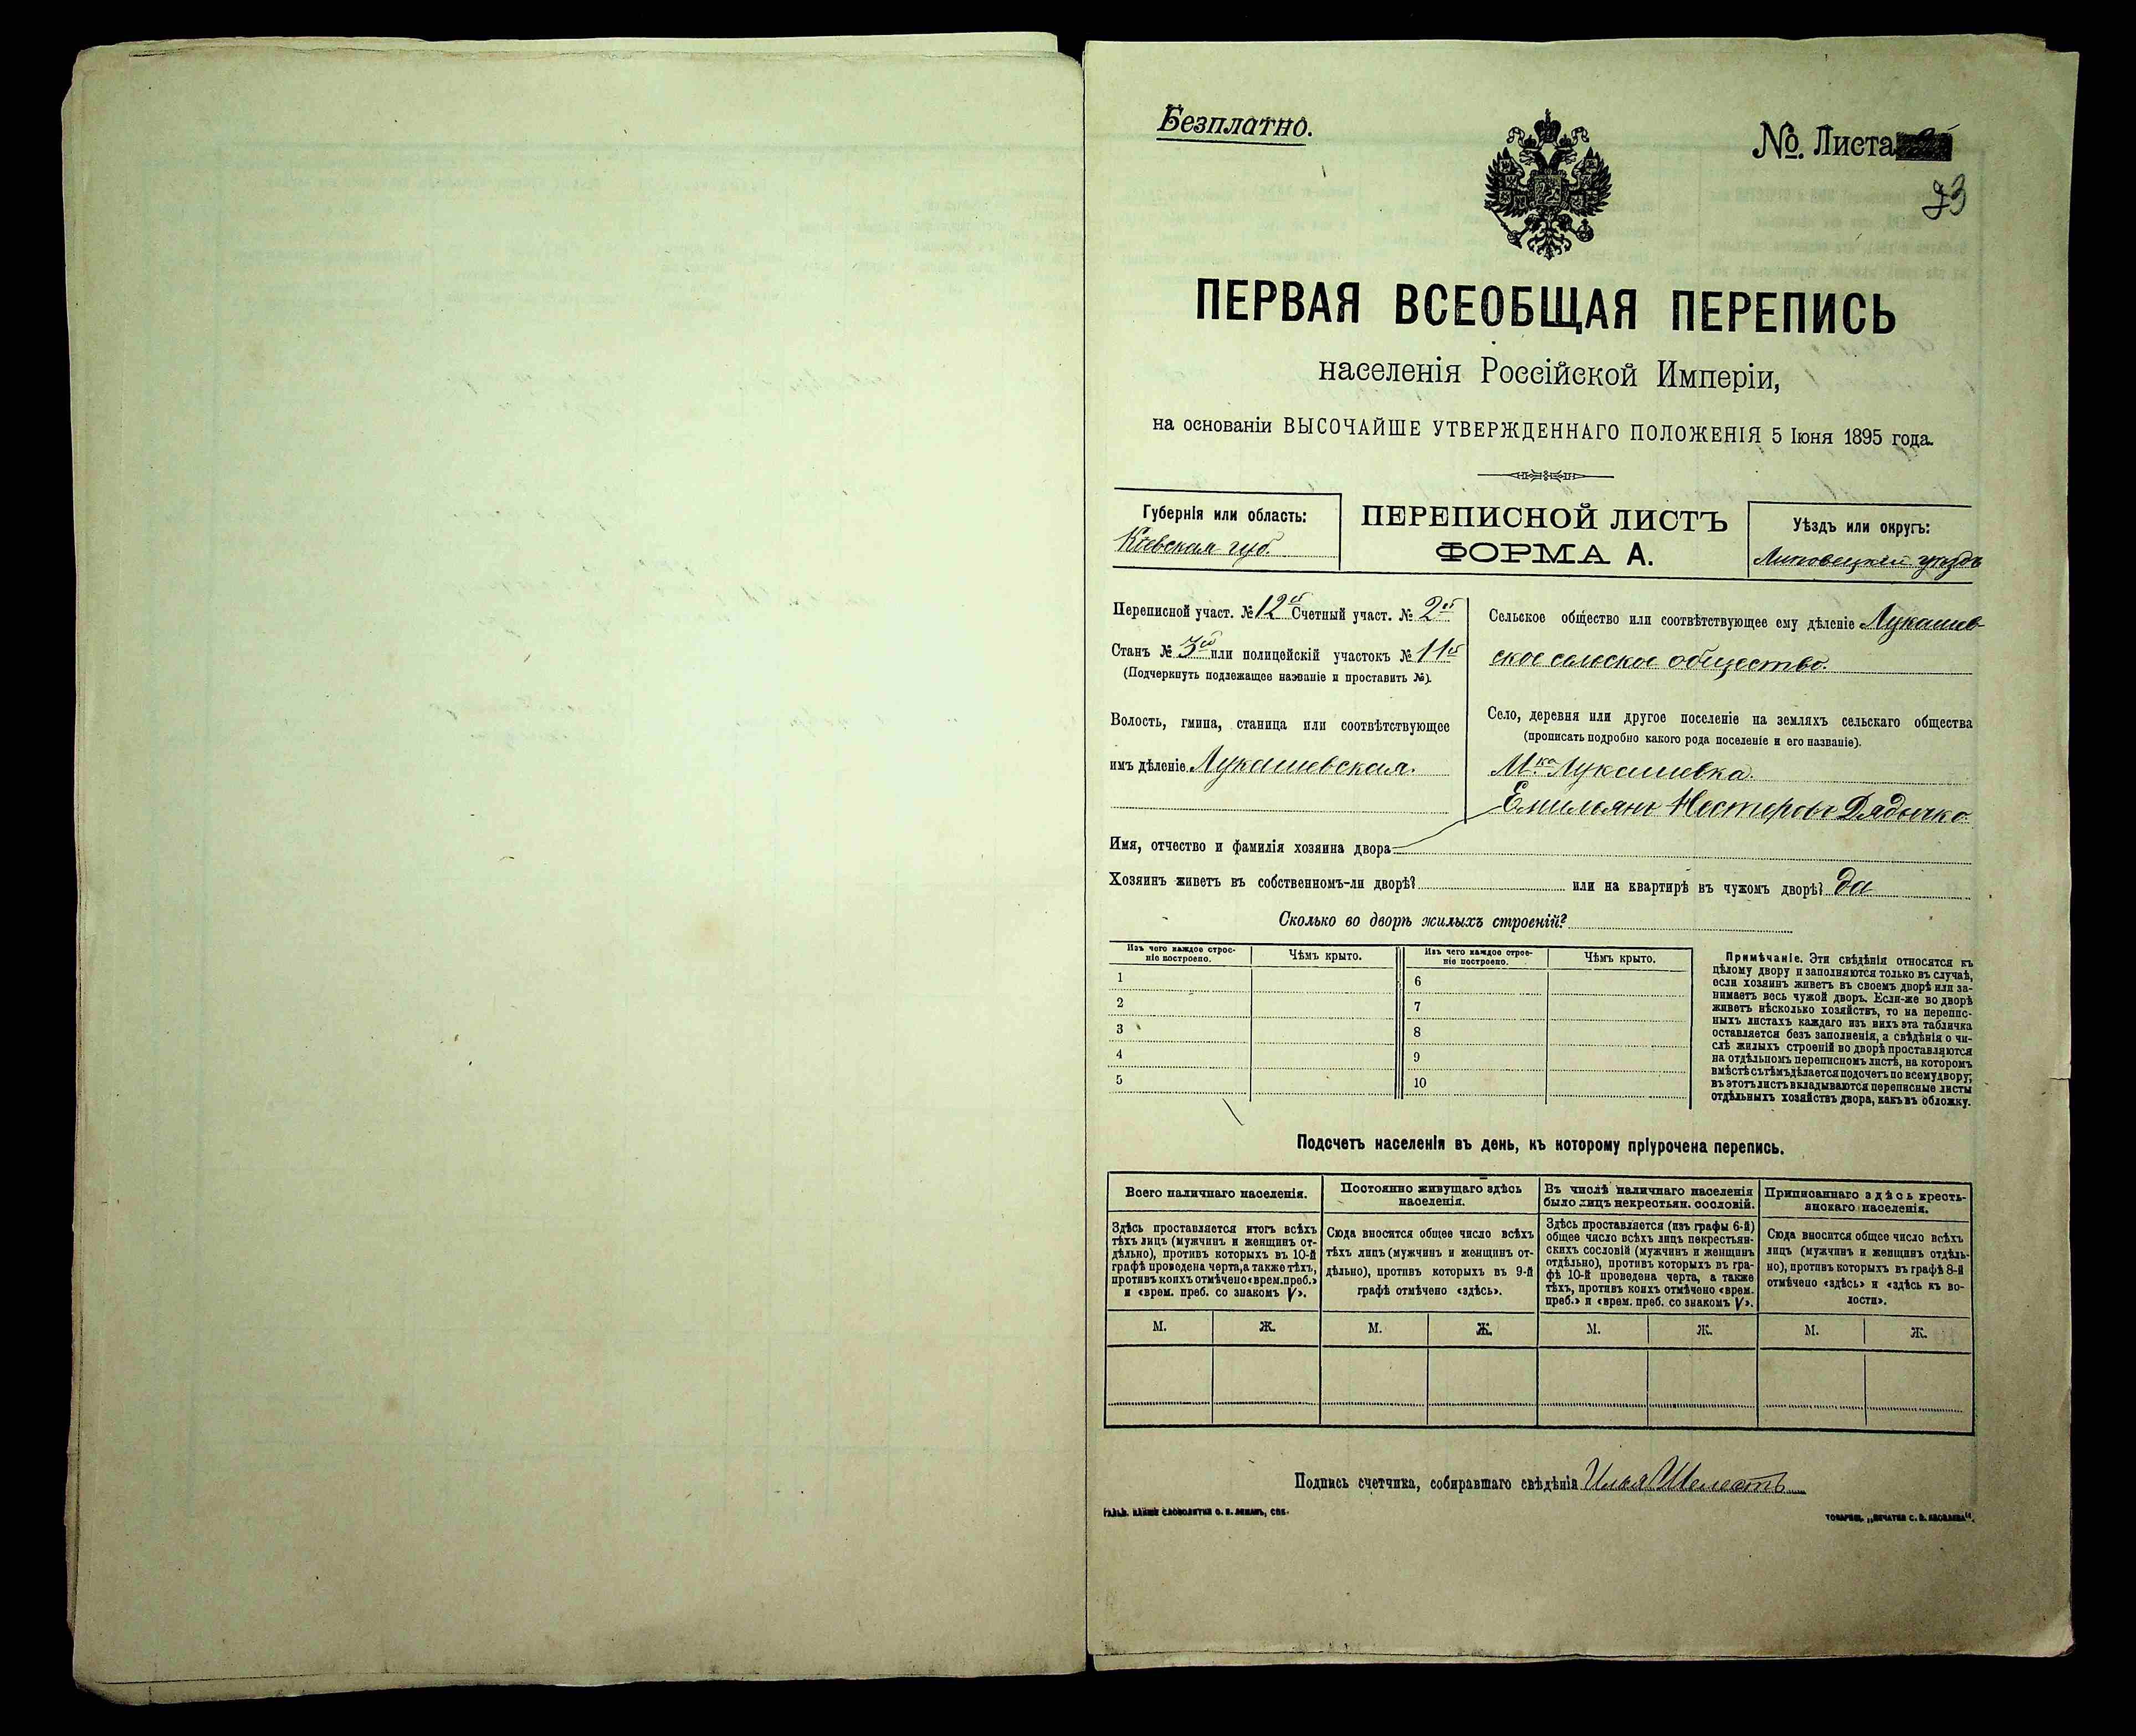 Безплатно.
№. Листа
73
ПЕРВАЯ ВСЕОБЩАЯ ПЕРЕПИСЬ
населенія Россійской Имперіи,
на основаніи ВЫСОЧАЙШЕ УТВЕРЖДЕННАГО ПОЛОЖЕНІЯ 5 Іюня 1895 года.
Губернія или область:
Кіевская губ.
ПЕРЕПИСНОЙ ЛИСТЪ
ФОРМА А.
Уѣздъ или округъ:
Липовецкій уѣздъ
Переписной участ. № 12й Счетный участ. № 2й
Станъ № 3й или полицейскій участокъ № 11й
(Подчеркнуть подлежащее названіе и проставить №).
Волость, гмина, станица или соотвѣтствующее
имъ дѣленіе Лукашевская.
Сельское общество или соотвѣтствующее ему дѣленіе Лукашев-
ское сельское общество.
Село, деревня или другое поселеніе на земляхъ сельскаго общества
(прописать подробно какого рода поселеніе и его названіе).
М.ка Лукашевка.
Емильянъ Нестеровъ Дядычко
Имя, отчество и фамилія хозяина двора
Хозяинъ живетъ въ собственномъ-ли дворѣ? или на квартирѣ въ чужомъ дворѣ? да
Сколько во дворѣ жилыхъ строеній?
Изъ чего каждое строе-
ніе построено.
Чѣмъ крыто.
1
2
3
4
5
Изъ чего каждое строе-
ніе построено.
Чѣмъ крыто.
6
7
8
9
10
Примѣчаніе. Эти свѣдѣнія относятся къ
цѣлому двору и заполняются только въ случаѣ,
если хозяинъ живетъ въ своемъ дворѣ или за-
нимаетъ весь чужой дворъ. Если-же во дворѣ
живетъ нѣсколько хозяйствъ, то на перепис-
ныхъ листахъ каждаго изъ нихъ эта табличка
оставляется безъ заполненія, а свѣдѣнія о чи-
слѣ жилыхъ строеній во дворѣ проставляются
на отдѣльномъ переписномъ листѣ, на которомъ
вмѣстѣ съ тѣмъ дѣлается подсчетъ по всему двору;
въ этотъ листъ вкладываются переписные листы
отдѣльныхъ хозяйствъ двора, какъ въ обложку.
Подсчетъ населенія въ день, къ которому пріурочена перепись.
Всего наличнаго населенія.
Здѣсь проставляется итогъ всѣхъ
тѣхъ лицъ (мужчинъ и женщинъ от-
дѣльно), противъ которыхъ въ 10-й
графѣ проведена черта, а также тѣхъ,
противъ коихъ отмѣчено «врем. преб.»
и «врем. преб. со знакомъ V».
М. Ж.
Постоянно живущаго здѣсь
населенія.
Сюда вносится общее число всѣхъ
тѣхъ лицъ (мужчинъ и женщинъ от-
дѣльно), противъ которыхъ въ 9-й
графѣ отмѣчено «здѣсь».
М. Ж.
Въ числѣ наличнаго населенія
было лицъ некрестьян. сословій.
Здѣсь проставляется (изъ графы 6-й)
общее число всѣхъ лицъ некрестьян-
скихъ сословій (мужчинъ и женщинъ
отдѣльно), противъ которыхъ въ гра-
фѣ 10-й проведена черта, а также
тѣхъ, противъ коихъ отмѣчено «врем.
преб.» и «врем. преб. со знакомъ V».
М. Ж.
Приписаннаго здѣсь кресть-
янскаго населенія.
Сюда вносится общее число всѣхъ
лицъ (мужчинъ и женщинъ отдѣль-
но), противъ которыхъ въ графѣ 8-й
отмѣчено «здѣсь» и «здѣсь къ во-
лости».
М. Ж.
Подпись счетчика, собиравшаго свѣдѣнія Илья Шелестъ
ТОВАРИЩ. „ПЕЧАТНЯ С. П. ЯКОВЛЕВА“.